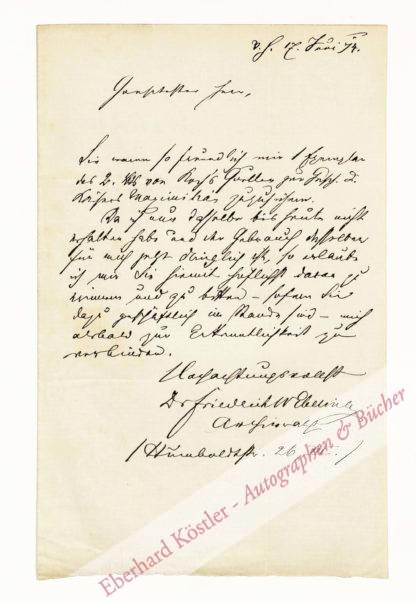 v. H. 17. Juni 74.
Geehrtester Herr,
Sie waren so freundlich mir 1 Exemplar
des 2. Bds von Koch's Quellen zur Gesch. d.
Kaisers Maximilian zuzusichern.
Da ich nun dasselbe bis heute nicht
erhalten habe und der Gebrauch desselben
für mich jetzt dringlich ist, so erlaube
ich mir Sie hiemit höflichst daran zu
erinnern und zu bitten – sofern Sie
dazu gefälligst im Stande sind – mich
alsbald zur Erkenntlichkeit zu
verbinden.
Hochachtungsvollst
Dr Friedrich W Ebeling
Archivrath
(Humboldtstr. 26
Eberhard Köstler - Autographen & Bücher